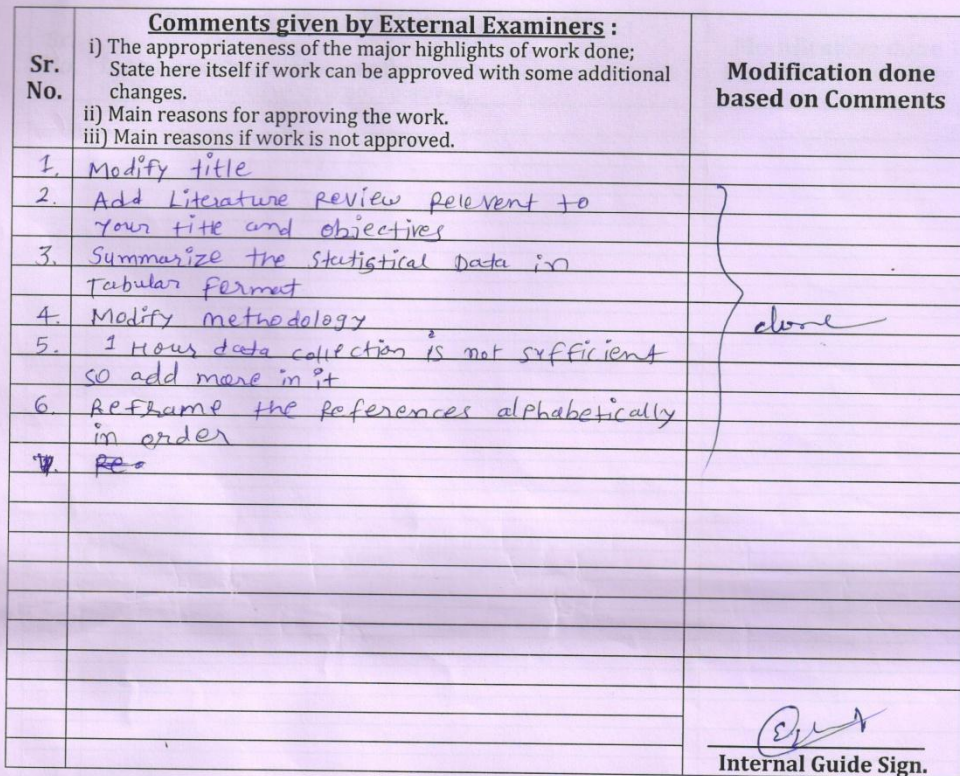 Comments given by External Examiners :
i) The appropriateness of the major highlights of work done;
State here itself if work can be approved with some additional
changes.
ii) Main reasons for approving the work.
iii) Main reasons if work is not approved.
Sr.
No.
Modification done
based on Comments
1. Modify title
2. Add Literature Review Relevent to
your title and objectives
3. Summarize the Statistical Data in
Tabular Format
4. Modify methodology
5. 1 Hour data collection is not sufficient
so add more in it
6. Reframe the References alphabetically
in order
done
Internal Guide Sign.